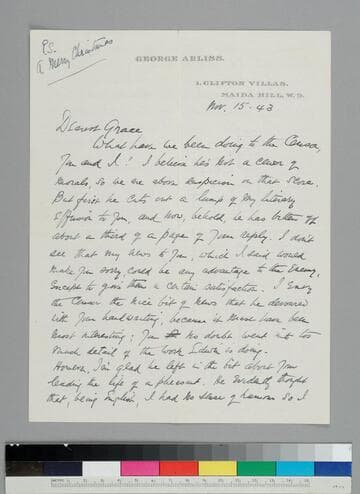 P.S.
a Merry Christmas
GEORGE ARLISS.
1, CLIFTON VILLAS,
MAIDA HILL, W.9.
Nov. 15 - 43
Dearest Grace,
What have we been doing to the Censor,
You and I! I believe he's not a censor of
morals, so we are above suspicion on that score.
But first he cuts out a lump of my literary
effusion to you, and now, behold, he has bitten off
about a third of a page of your reply. I don't
see that my news to you, which I said would
make you sorry, could be any advantage to the enemy,
except to give them a certain satisfaction. I envy
the Censor the nice bit of news that he devoured
with your handwriting, because it must have been
most interesting; you no doubt went into too
much detail of the work Edwin is doing.
However, I'm glad he left in the bit about your
leading the life of a pheasant. He evidently thought
that, being English I had no sense of humour so I